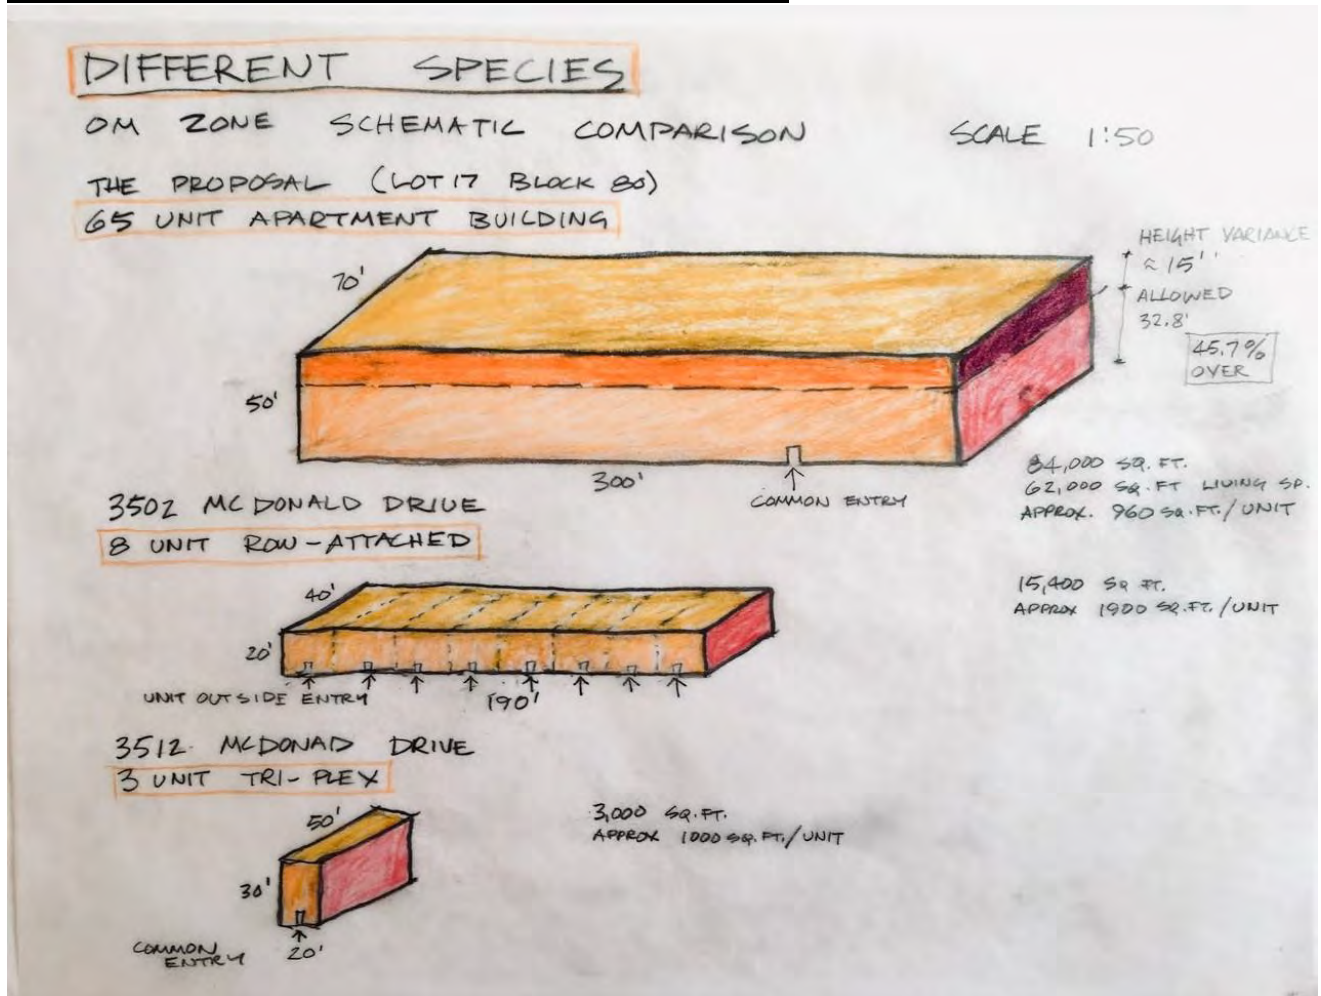 DIFFERENT SPECIES
OM ZONE SCHEMATIC COMPARISON SCALE 1:50
THE PROPOSAL (LOT 17 BLOCK 80)
65 UNIT APARTMENT BUILDING
HEIGHT VARIANCE
≈ 15'
ALLOWED
32.8'
45.7%
OVER
70'
50'
300'
COMMON ENTRY
84,000 SQ. FT.
62,000 SQ. FT LIVING SP.
APPROX. 960 SQ. FT. / UNIT
3502 MCDONALD DRIVE
8 UNIT ROW-ATTACHED
40'
20'
UNIT OUTSIDE ENTRY
190'
15,400 SQ FT.
APPROX 1900 SQ. FT. / UNIT
3512 MCDONAD DRIVE
3 UNIT TRI-PLEX
50'
30'
COMMON
ENTRY
20'
3,000 SQ. FT.
APPROX 1000 SQ. FT. / UNIT